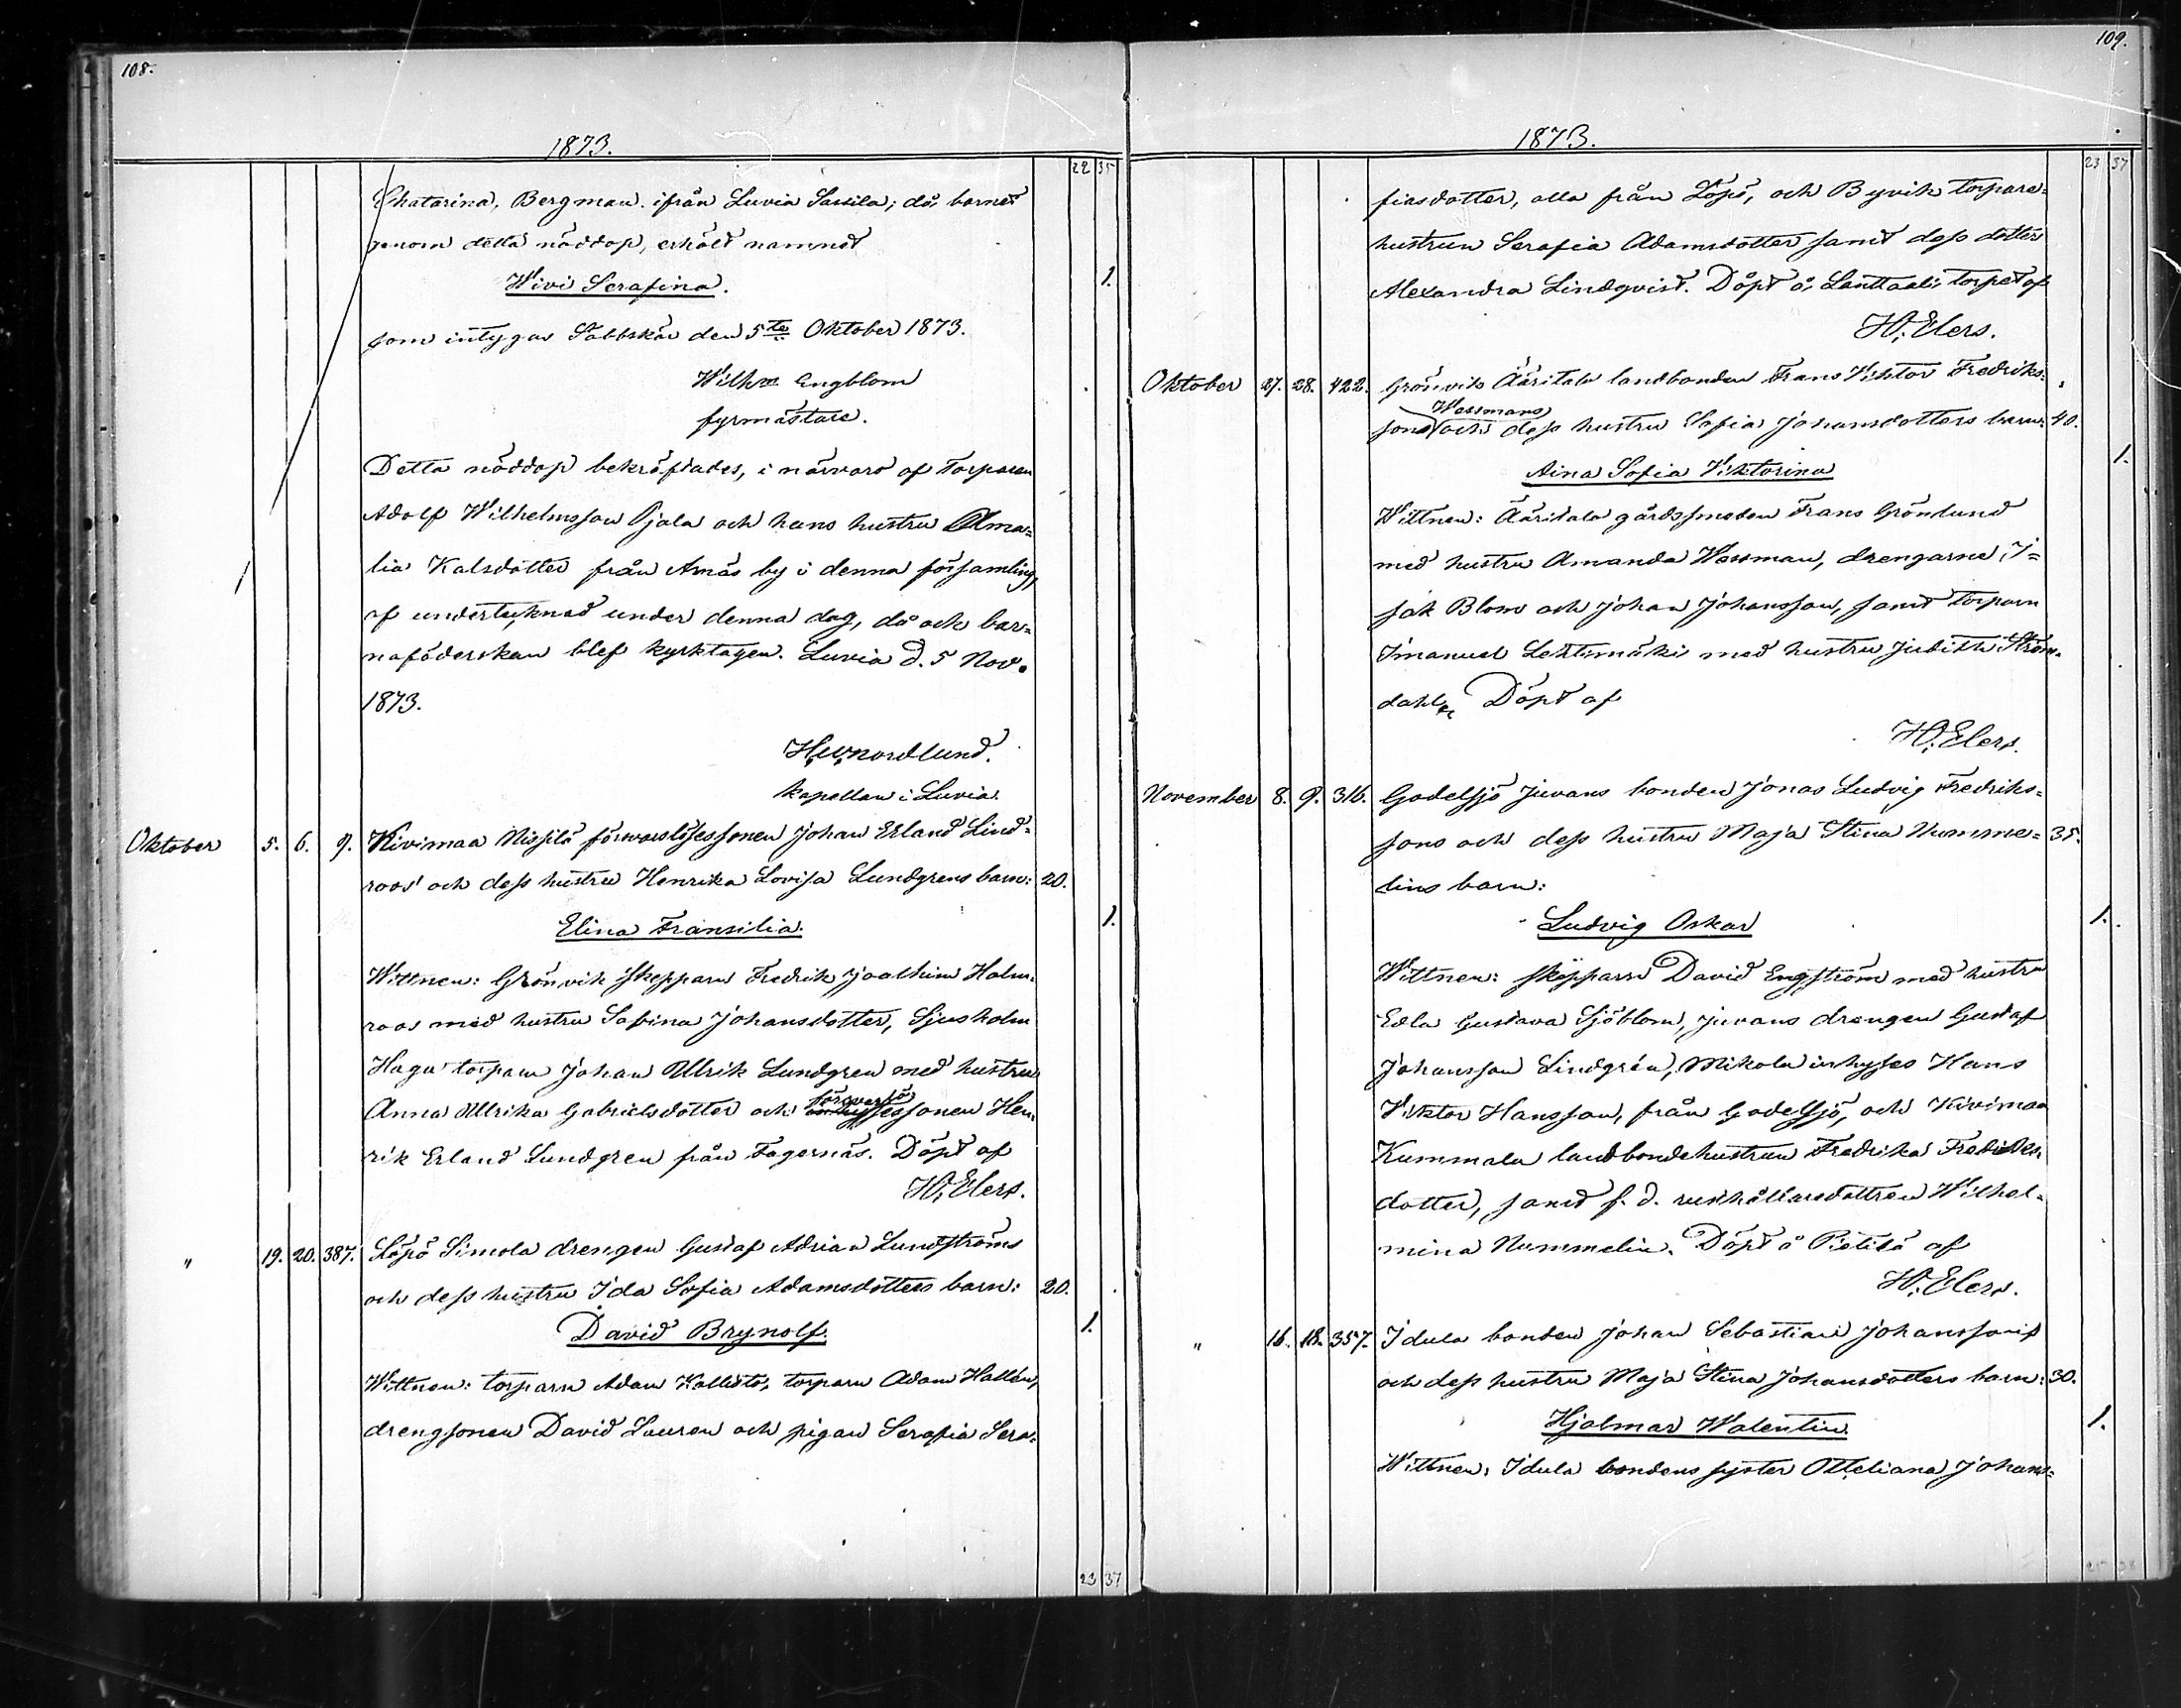 108.
1873.
22 35
Chatarina, Bergman ifrån Luvia Sassila; då barnet
genom detta nöddop, erhölt namnet
Wivi Serafina.
1.
som intygas Säbbskär den 5te Oktober 1873.
Wilhm Engblom
fyrmästare.
Detta nöddop bekräftades, i närvaro af Torparen
Adolf Wilhelmsson Ojala och hans hustru Ama=
lia Kalsdotter från Arnäs by i denna församling,
af undertecknad under denna dag, då och bar=
naföderskan blef kyrktagen. Luvia d. 5 Nov.
1873.
Nordlund.
kapellan i Luvia.
Oktober 5. 6. 9. Kivimaa Nissilä försvarslösessonen Johan Erland Lind=
roos' och dess hustru Henrika Lovisa Lundgrens barn: 20.
Elina Fransilia.
1.
Wittnen: Grönvik skepparn Fredrik Joachim Holm=
roos med hustru Sabina Johansdotter, Sjusholm
Haga torparn Johan Ulrik Lundgren med hustru
Anna Ulrika Gabrielsdotter och försvarslösessonen Hen=
rik Erland Lundgren från Fagernäs. Döpt af
H. Elers.
" 19. 20. 387. Löpö Simola drengen Gustaf Adrian Lundströms
och dess hustru Ida Sofia Adamsdotters barn: 20.
David Brynolf.
1.
Wittnen: torparn Adam Kallistö, torparn Adam Hallén,
drengsonen David Lauren och pigan Serafia Sera=
23 37
109.
1873.
23 37
fiasdotter, alla från Löpö, och Byvik torpare=
hustrun Serafia Adamsdotter samt dess dotter
Alexandra Lindqvist. Döpt å Lanttaali torpet af
H. Elers.
Oktober 27. 28. 422. Grönvik Ääritalo landbonden Frans Viktor Fredriks=
sons Wessmans och dess hustru Sofia Johansdotters barn: 40.
1.
Aina Sofia Viktorina
Wittnen: Ääritalo gårdssmeden Frans Grönlund
med hustru Amanda Wessman, drengarne I=
sak Blom och Johan Johansson, samt torparn
Imanuel Lehtimäki med hustru Judith Ström=
dahl. Döpt af
H. Elers.
November 8. 9. 316. Godelsjö Juvans bonden Jonas Ludvig Fredriks=
sons och dess hustru Maja Stina Numme= 35.
lins barn:
Ludvig Oskar
1.
Wittnen: skepparn David Engström med hustru
Edla Gustava Sjöblom, Juvans drengen Gustaf
Johansson Lindgrén, Mikola inhyses Hans
Viktor Hansson, från Godelsjö, och Kivimaa
Kummala landbondehustrun Fredrika Fredriks=
dotter, samt f. d. rusthållaredottren Wilhel=
mina Nummelin. Döpt å Pietilä af
H. Elers.
" 16. 18. 357. Idula bonden Johan Sebastian Johanssons
och dess hustru Maja Stina Johansdotters barn: 30.
Hjalmar Walentin
1.
Wittnen: Idula bondens syster Otteliana Johans=